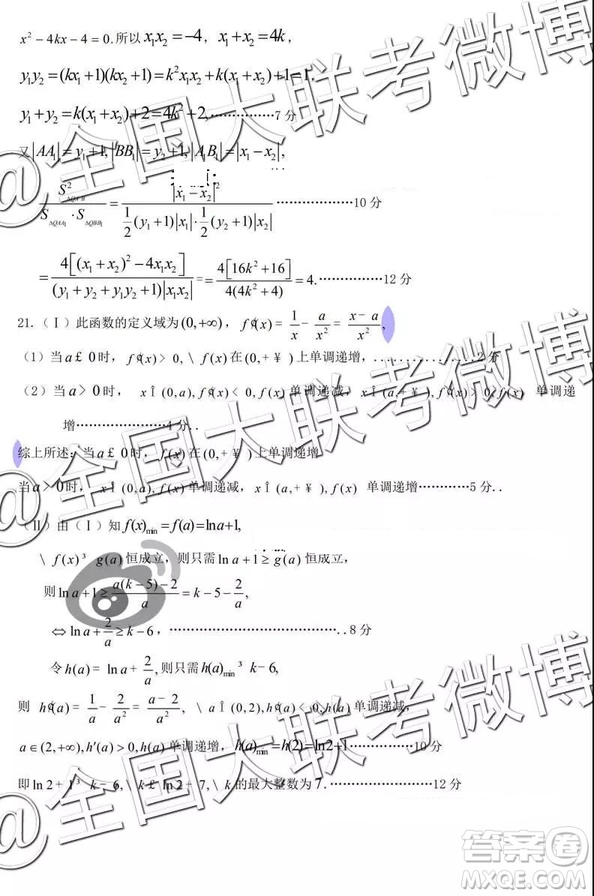 x²-4kx-4=0.所以 x₁x₂=-4, x₁+x₂=4k,
y₁y₂=(kx₁+1)(kx₂+1)=k²x₁x₂+k(x₁+x₂)+1=1,
y₁+y₂=k(x₁+x₂)+2=4k²+2,……………7分
又|AA₁|=y₁+1,|BB₁|=y₂+1,|A₁B₁|=|x₁-x₂|,
=|x₁-x₂|²/(½(y₁+1)|x₁|·½(y₂+1)|x₂|)………………10分
=4[(x₁+x₂)²-4x₁x₂]/((y₁+y₂+y₁y₂+1)|x₁x₂|)=4[16k²+16]/(4(4k²+4))=4.……………12分
21.(Ⅰ)此函数的定义域为(0,+∞), f¢(x)=1/x-a/x²=(x-a)/x²,
(1)当a£0时, f¢(x)>0,\ f(x)在(0,+¥)上单调递增,………………2分
(2)当a>0时, xÎ(0,a),f¢(x)<0,f(x)单调递减, xÎ(a,+¥),f¢(x)>0,f(x) 单调递
增………………4分..
综上所述:当a£0时, f(x)在(0,+¥)上单调递增
当a>0时, xÎ(0,a),f(x)单调递减, xÎ(a,+¥),f(x) 单调递增…………5分..
(Ⅱ)由(Ⅰ)知 f(x)min=f(a)=lna+1,
\ f(x)³ g(a)恒成立,则只需 lna+1≥g(a)恒成立,
则lna+1≥(a(k-5)-2)/a=k-5-2/a,
⇔lna+2/a≥k-6,………………………………..8分
令h(a)=lna+2/a,则只需h(a)min³ k-6,
则 h¢(a)=1/a-2/a²=(a-2)/a²,\ aÎ(0,2),h¢(a)<0,h(a)单调递减,
a∈(2,+∞),h′(a)>0,h(a)单调递增, h(a)min=h(2)=ln2+1……………10分
即ln2+1³ k-6,\ k£ ln2+7,\ k的最大整数为7.………………………12分
@全国大联考微博
@全国大联考微博
@全国大联考微博
答案圈
MXQE.COM